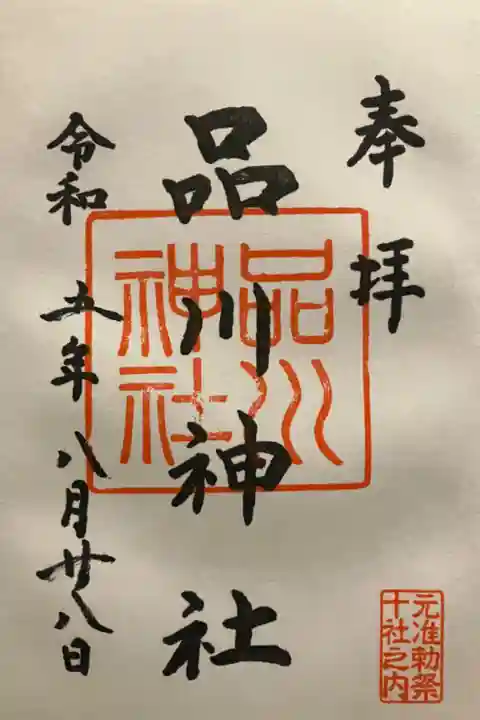 奉拝
品川神社
品川
神社
令和五年八月廿八日
元准勅祭
十社之内